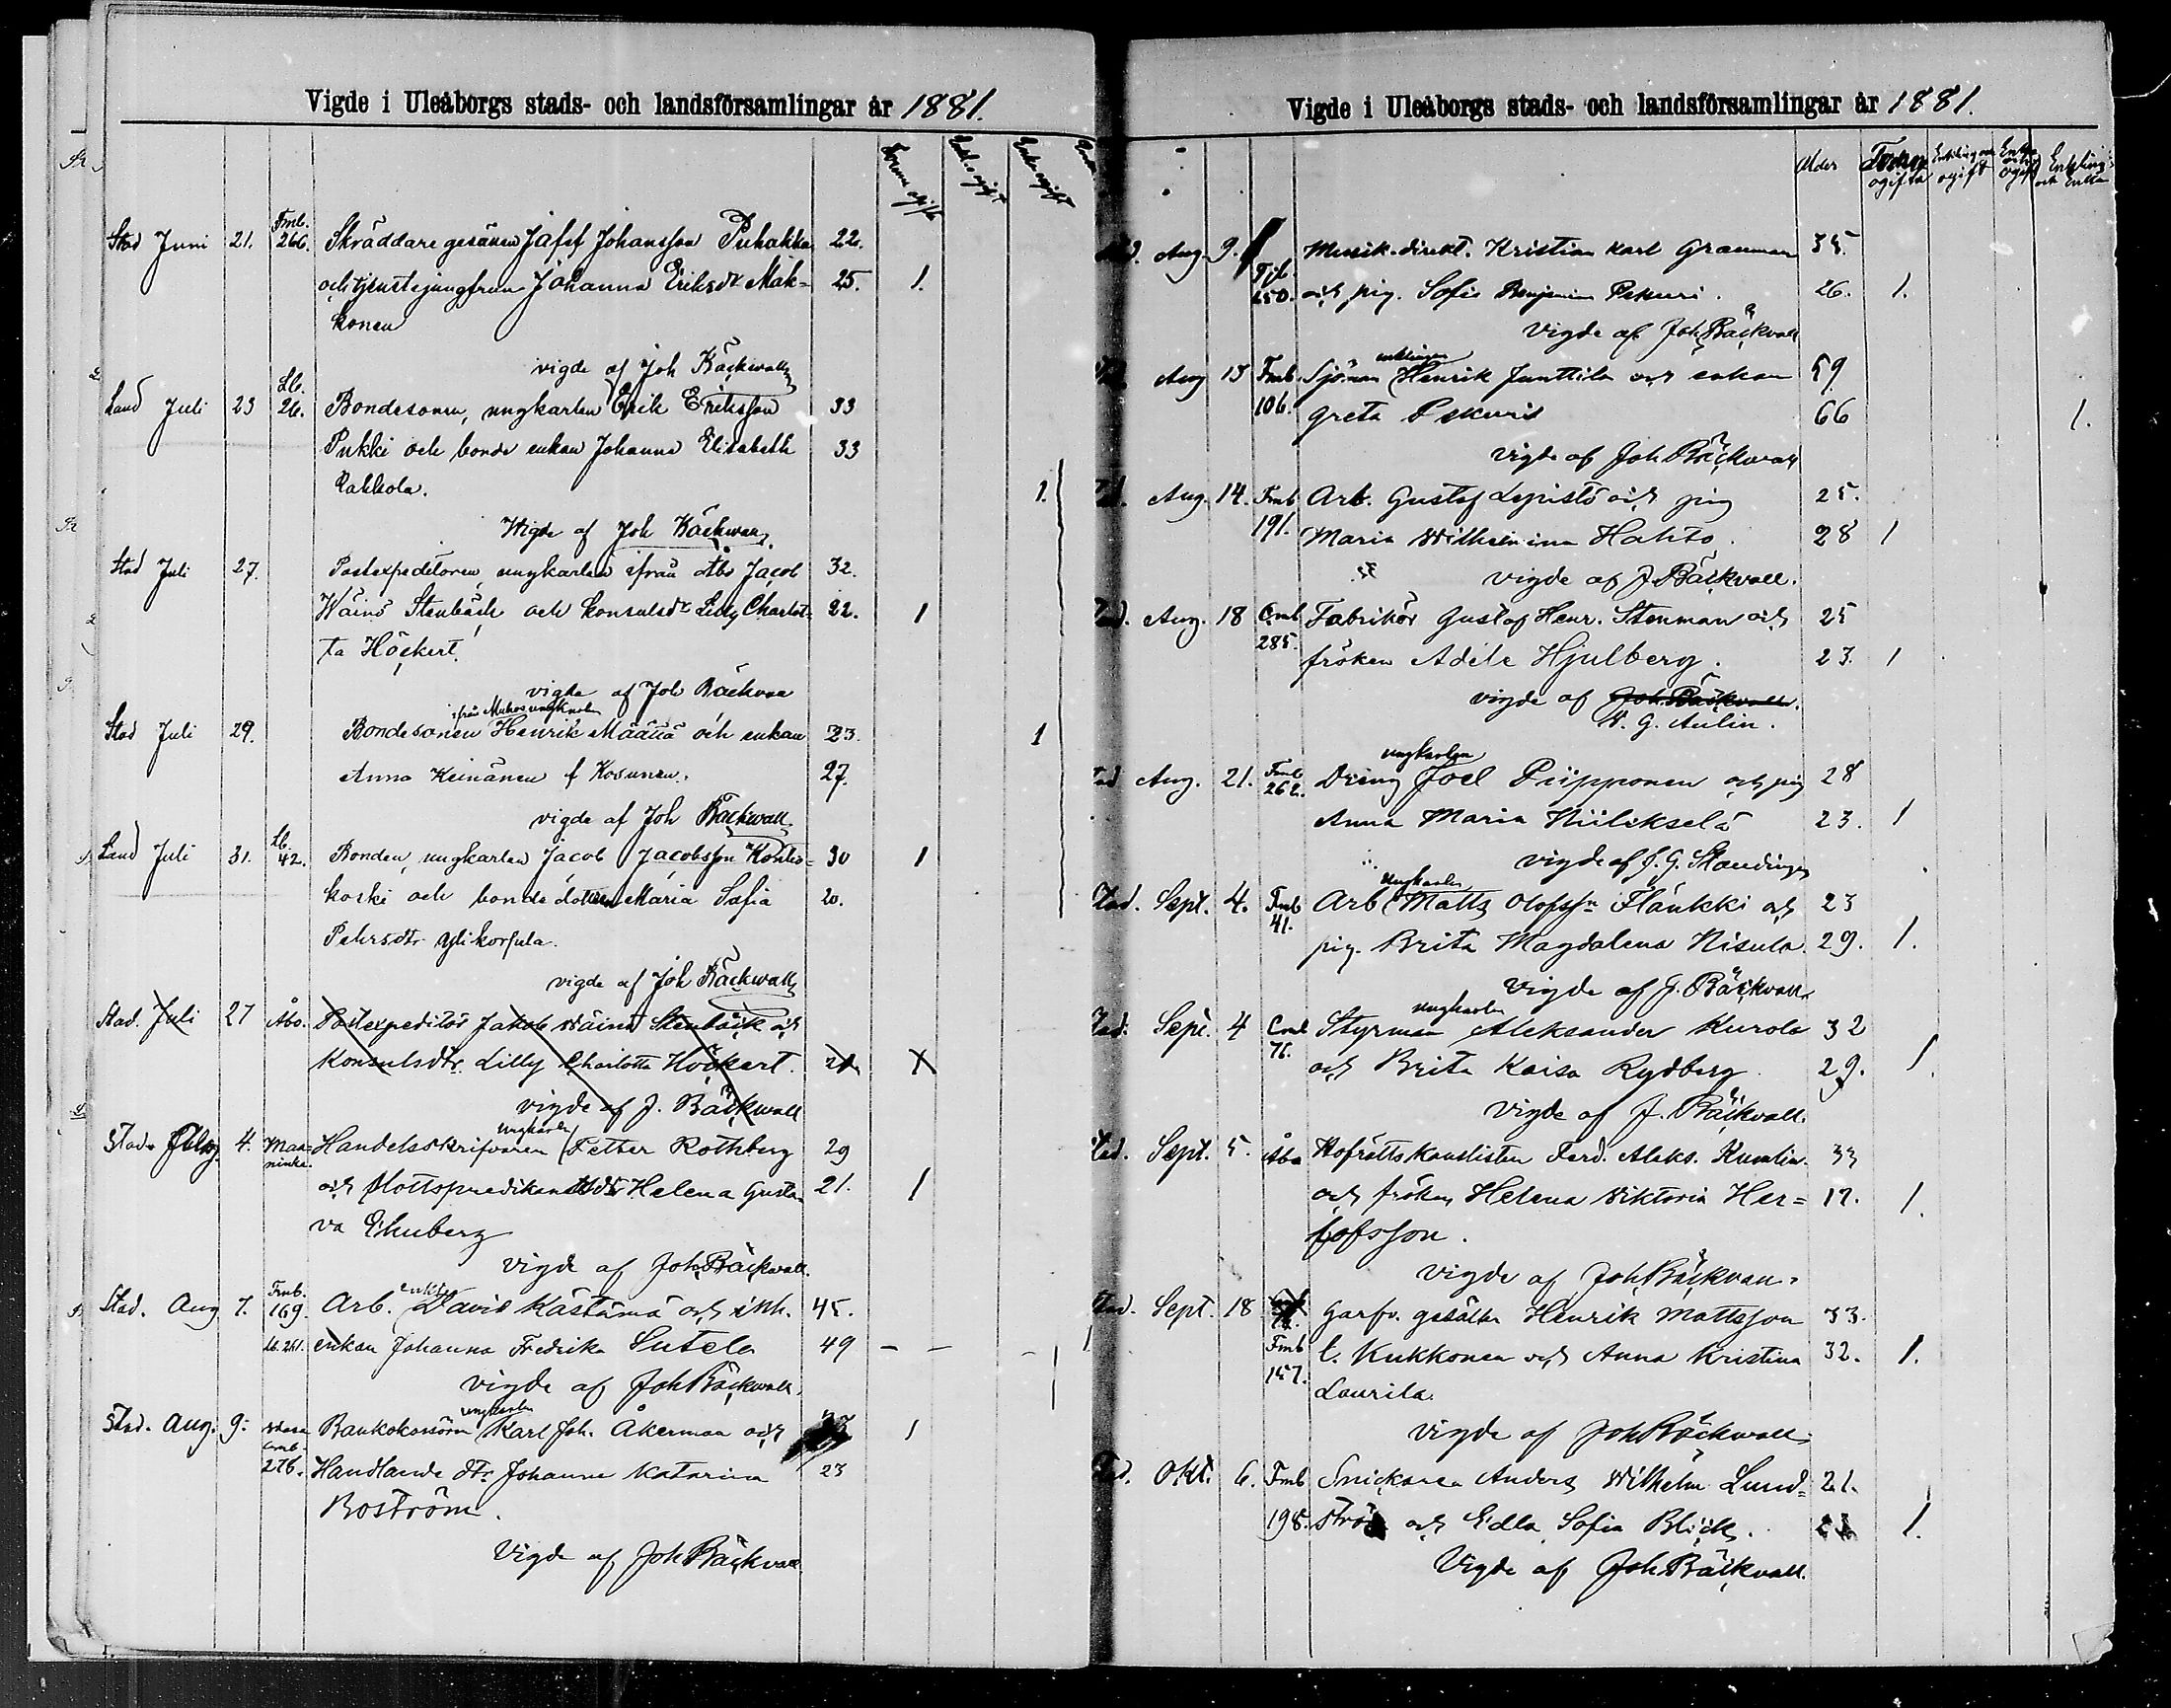 Vigde i Uleåborgs stads- och landsförsamlingar år 1881.
Stad Juni 21. Fmb. 266. Skräddare gesänen Jafet Johansson Puhakka 22.
och tjenstejungfrun Johanna Eriksdr Mak= 25. 1.
konen
vigde af Joh Bäckwall
Land Juli 23 Lb. 26. Bondesonen, ungkarlen Erik Eriksson 33
Pukki och bonde enkan Johanna Elisabeth 33
Rahkola. 1.
Wigde af Joh Bäckwall
Stad Juli 27. Postexpeditoren, ungkarlen ifrån Åbo Jacob 32.
Wäinö Stenbäck och konsulsdr Lilly Charlot= 22. 1
ta Höckert.
vigde af Joh Bäckwall
ifrån Muhos ungkarlen
Stad Juli 29. Bondesonen Henrik Määttä och enkan 23. 1
Anna Keinänen f Kosunen. 27.
vigde af Joh Bäckwall
Land Juli 31. Lb. 42. Bonden, ungkarlen Jacob Jacobsson Kontio= 30 1
koski och bonde dottren Maria Sofia 20.
Pehrsdtr Ylikorpula.
vigde af Joh Bäckwall
Stad. Juli 27 Åbo. Postexpeditör Jakob Wäinö Stenbäck och
Konsulsdtr. Lilly Charlotta Höckert. 21 1
vigde af J. Bäckwall
ungkarlen
Stad. 4. Maaninka. Handelsskrifvaren Petter Rothberg 29
och Slottspredikantsdtr Helena Gusta= 21. 1
va Ehnberg
vigde af Joh Bäckwall.
enkl.
Stad. Aug 7. Fmb. 169. Arb. David Kästämä och inh. 45.
Lb. 251. enkan Johanna Fredrika Sutela 49 – – – 1
vigde af Joh Bäckwall.
ungkarlen
Stad. Aug. 9. Wasa Bankokassörn Karl Joh. Åkerman och 1
Cmb. 276. Handlande dtr Johanna Katarina 23
Boström.
Vigde af Joh Bäckwall
Vigde i Uleåborgs stads- och landsförsamlingar år 1881.
Ålder Förut ogifta Enkling och ogift Enka och ogift Enkling och Enka
Aug. 9. Musik-direkt. Kristian Karl Granman 35.
250. och pig. Sofia Benjamin Pekuri. 26. 1.
vigde af Joh Bäckwall
enklingen
Aug 13 Fmb. 106. Sjöman Henrik Junttila och enkan 59
Greta Pekuris 66 1.
vigde af Joh Bäckwall
Aug. 14. Fmb 191. Arb. Gustaf Lepistö och pig 25.
Maria Wilhelmina Hahto. 28 1
vigde af J. Bäckwall.
Aug. 18 Cmb 285. Fabrikör Gustaf Henr. Stenman och 25
fröken Adele Hjulberg. 23. 1
vigde af Joh. Bäckwall.
W. G. Aulin.
ungkarlen
Aug. 21. Fmb 262. Dräng Joel Piipponen och pig 28
Anna Maria Niilekselä 23. 1
vigde af J. G. Standinger
ungkarlen
Stad. Sept. 4. Fmb 41. Arb Matts Olofssn Fläukki och 23
pig. Brita Magdalena Nisula 29. 1.
vigde af J. Bäckwall
ungkarlen
Stad. Sept. 4 Cmb 76. Styrman Aleksander Kurola 32
och Brita Kaisa Rydberg 29. 1.
vigde af J. Bäckvall.
Stad. Sept. 5. Åbo Hofrättskanslisten Ferd. Aleks. Kumlin. 33
och fröken Helena Wiktoria Her= 17. 1.
lofsson.
vigde af Joh Bäckvall.
Stad. Sept. 18 Garfv. gesällen Henrik Mattsson 33.
Fmb 157. t. Kukkonen och Anna Kristina 32. 1.
Laurila.
vigde af Joh Bäckwall.
Stad. Okt. 6. Fmb 198. Snickaren Anders Wilhelm Lund= 21.
ström och Edla Sofia Blick. 1.
Vigde af Joh Bäckvall.